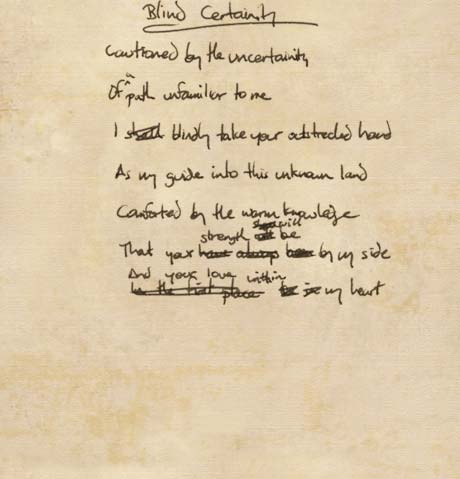 Blind Certainity
Cautioned by the uncertainity
Of a path unfamiliar to me
I blindly take your outstreched hand
As my guide into this unknown land
Comforted by the warm knowledge
That your strength will be by my side
And your love within my heart